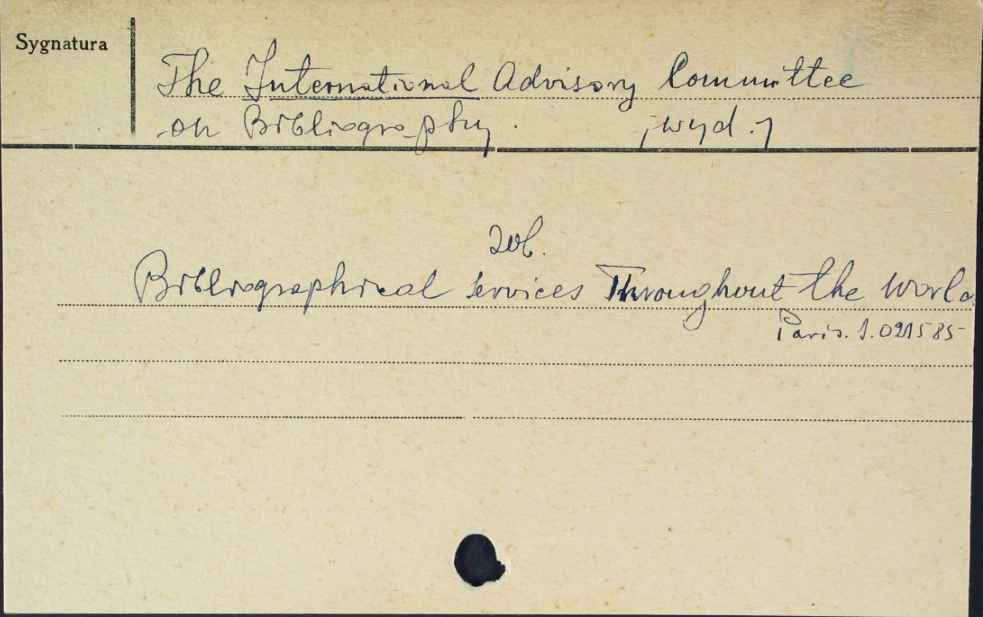 Sygnatura
The International Advisory Committee
on Bibliography. [wyd.]
zob.
Bibliographical services Throughout the World
Paris. S. 021585